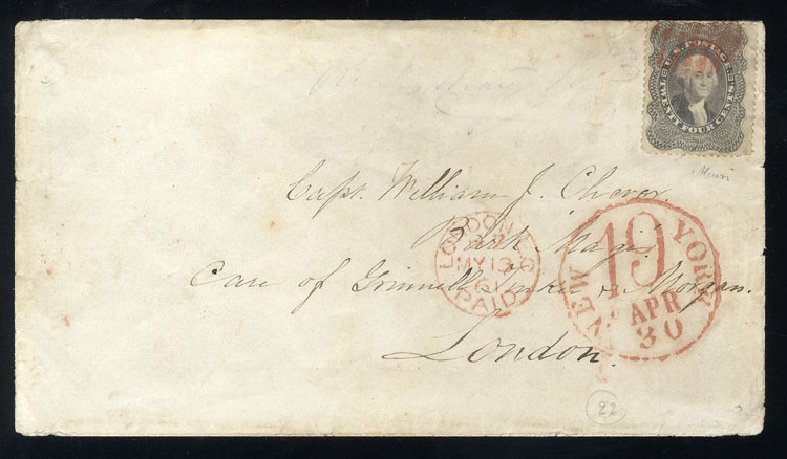 U.S. POSTAGE
TWENTY FOUR CENTS
Capt. William J. Chever.
Bark Magi
Care of Grinnell Tinker & Morgan.
London.
LONDON
MY 13
61
PAID
NEW YORK
19
APR
30
22